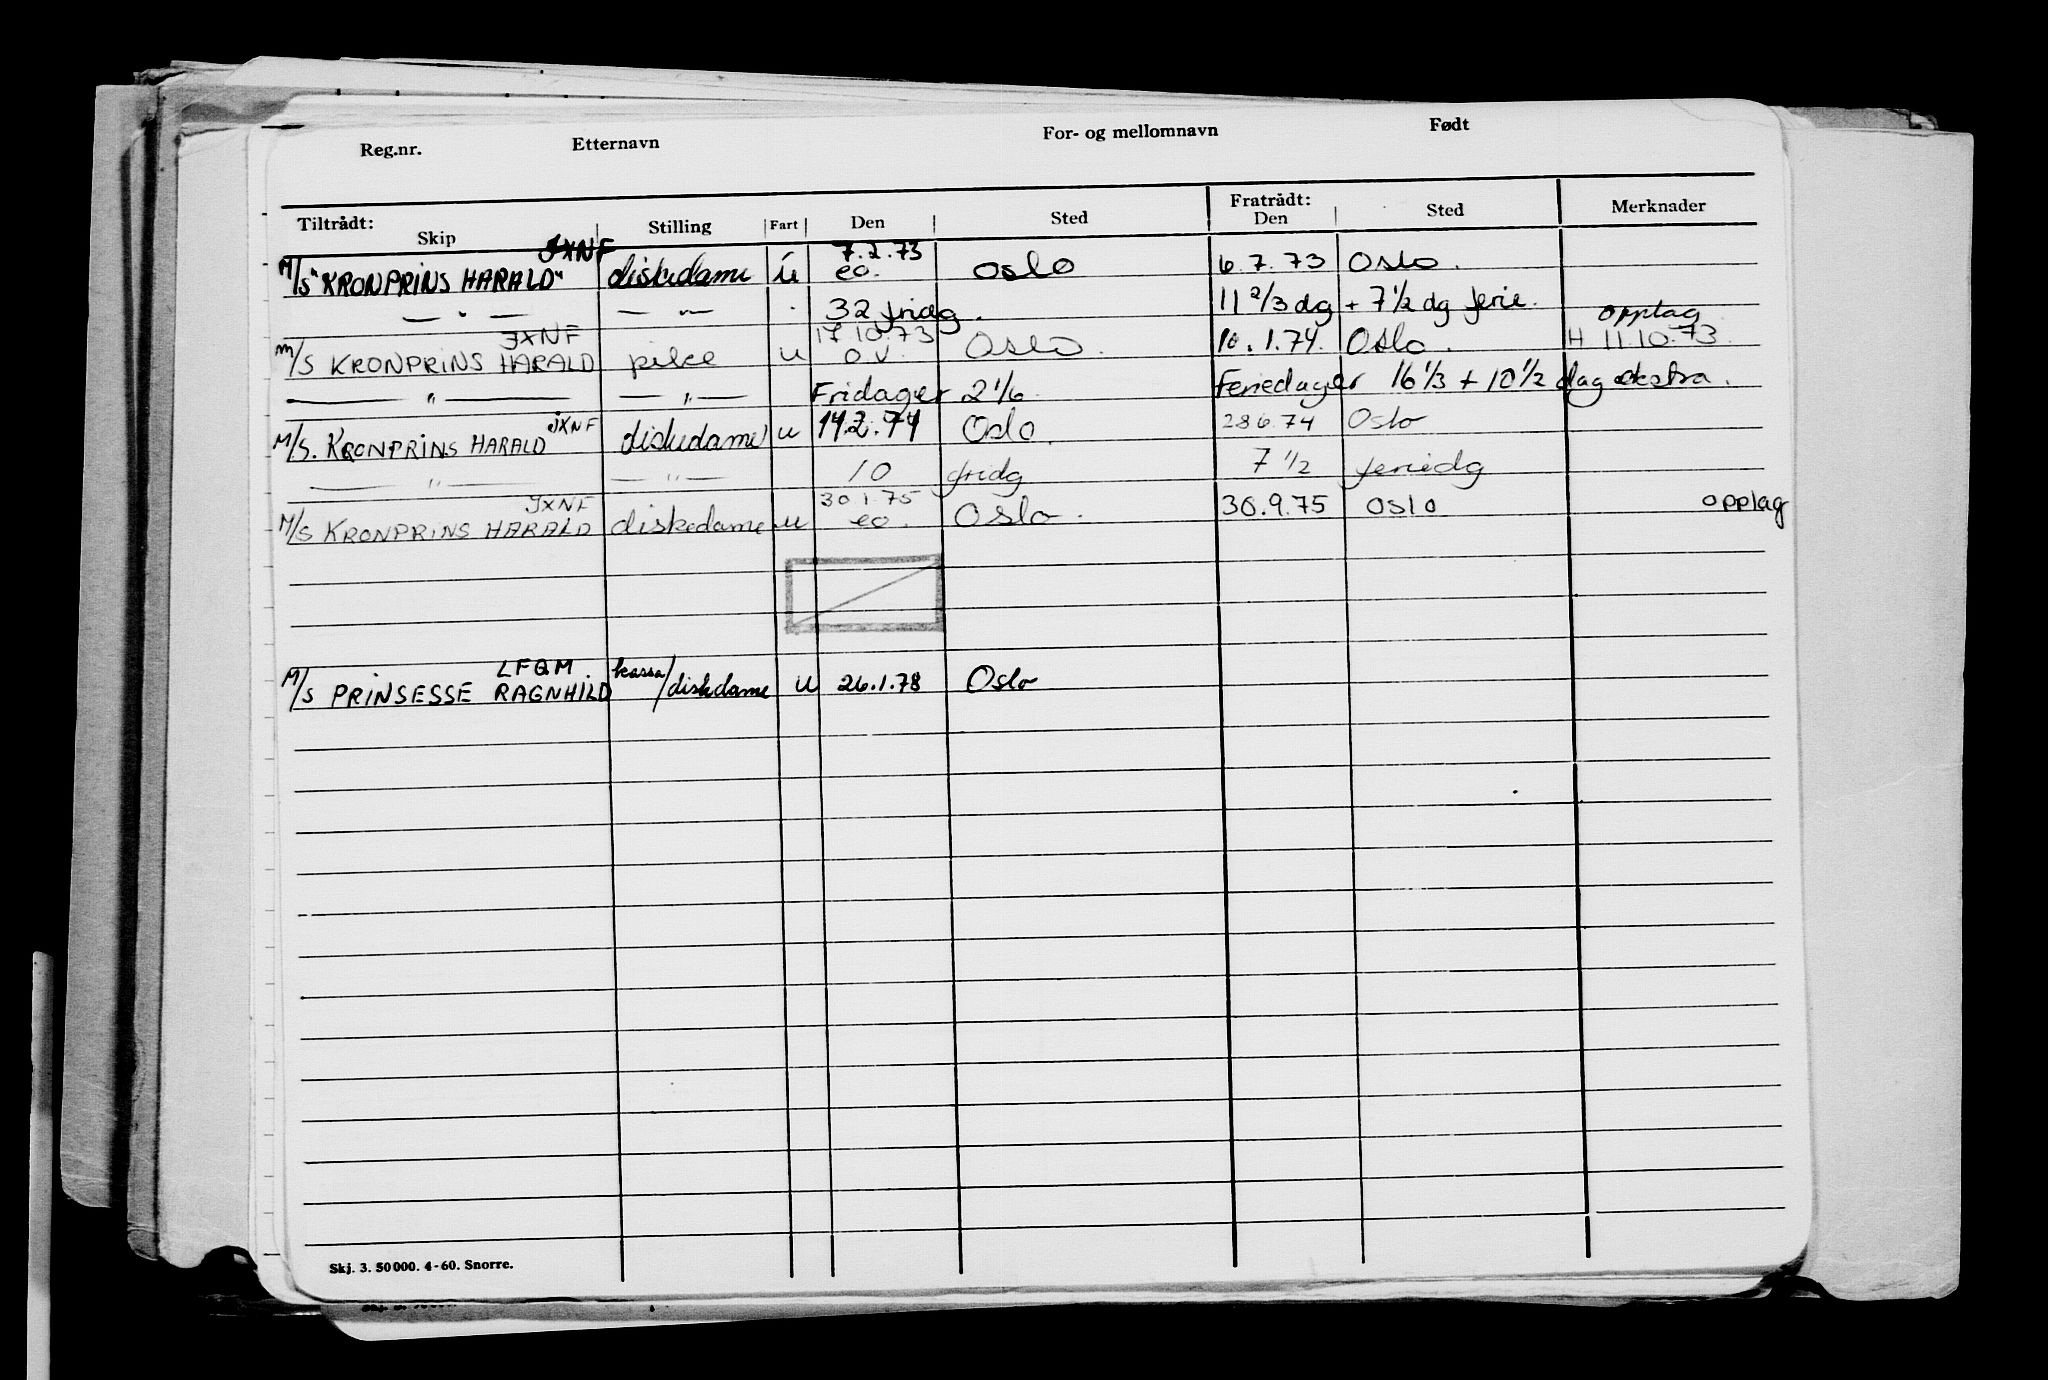 Reg.nr. Etternavn For- og mellomnavn Født
Tiltrådt: Fratrådt:
Skip Stilling Fart Den Sted Den Sted Merknader
JXNF 7.2.73
M/S "KRONPRINS HARALD" diskedame u eo. Oslo 6.7.73 Oslo.
— " — — " — 32 fridg. 11 2/3 dg + 7 1/2 dg ferie.
JXNF 17.10.73 opplag
M/S KRONPRINS HARALD pike u o.v. Oslo. 10.1.74. Oslo. H 11.10.73.
— " — — " — Fridager 2 1/6 Feriedager 16 1/3 + 10 1/2 dag ekstra.
JXNF
M/S. KRONPRINS HARALD diskedame u 14.2.74 Oslo. 28 6.74 Oslo
— " — — " — 10 fridg 7 1/2 feriedg
JXNF 30.1.75
M/S KRONPRINS HARALD diskedame u eo. Oslo. 30.9.75 Oslo opplag
LFQM. kassa
M/S PRINSESSE RAGNHILD /diskdame u 26.1.78 Oslo
Skj. 3. 50 000. 4-60. Snorre.